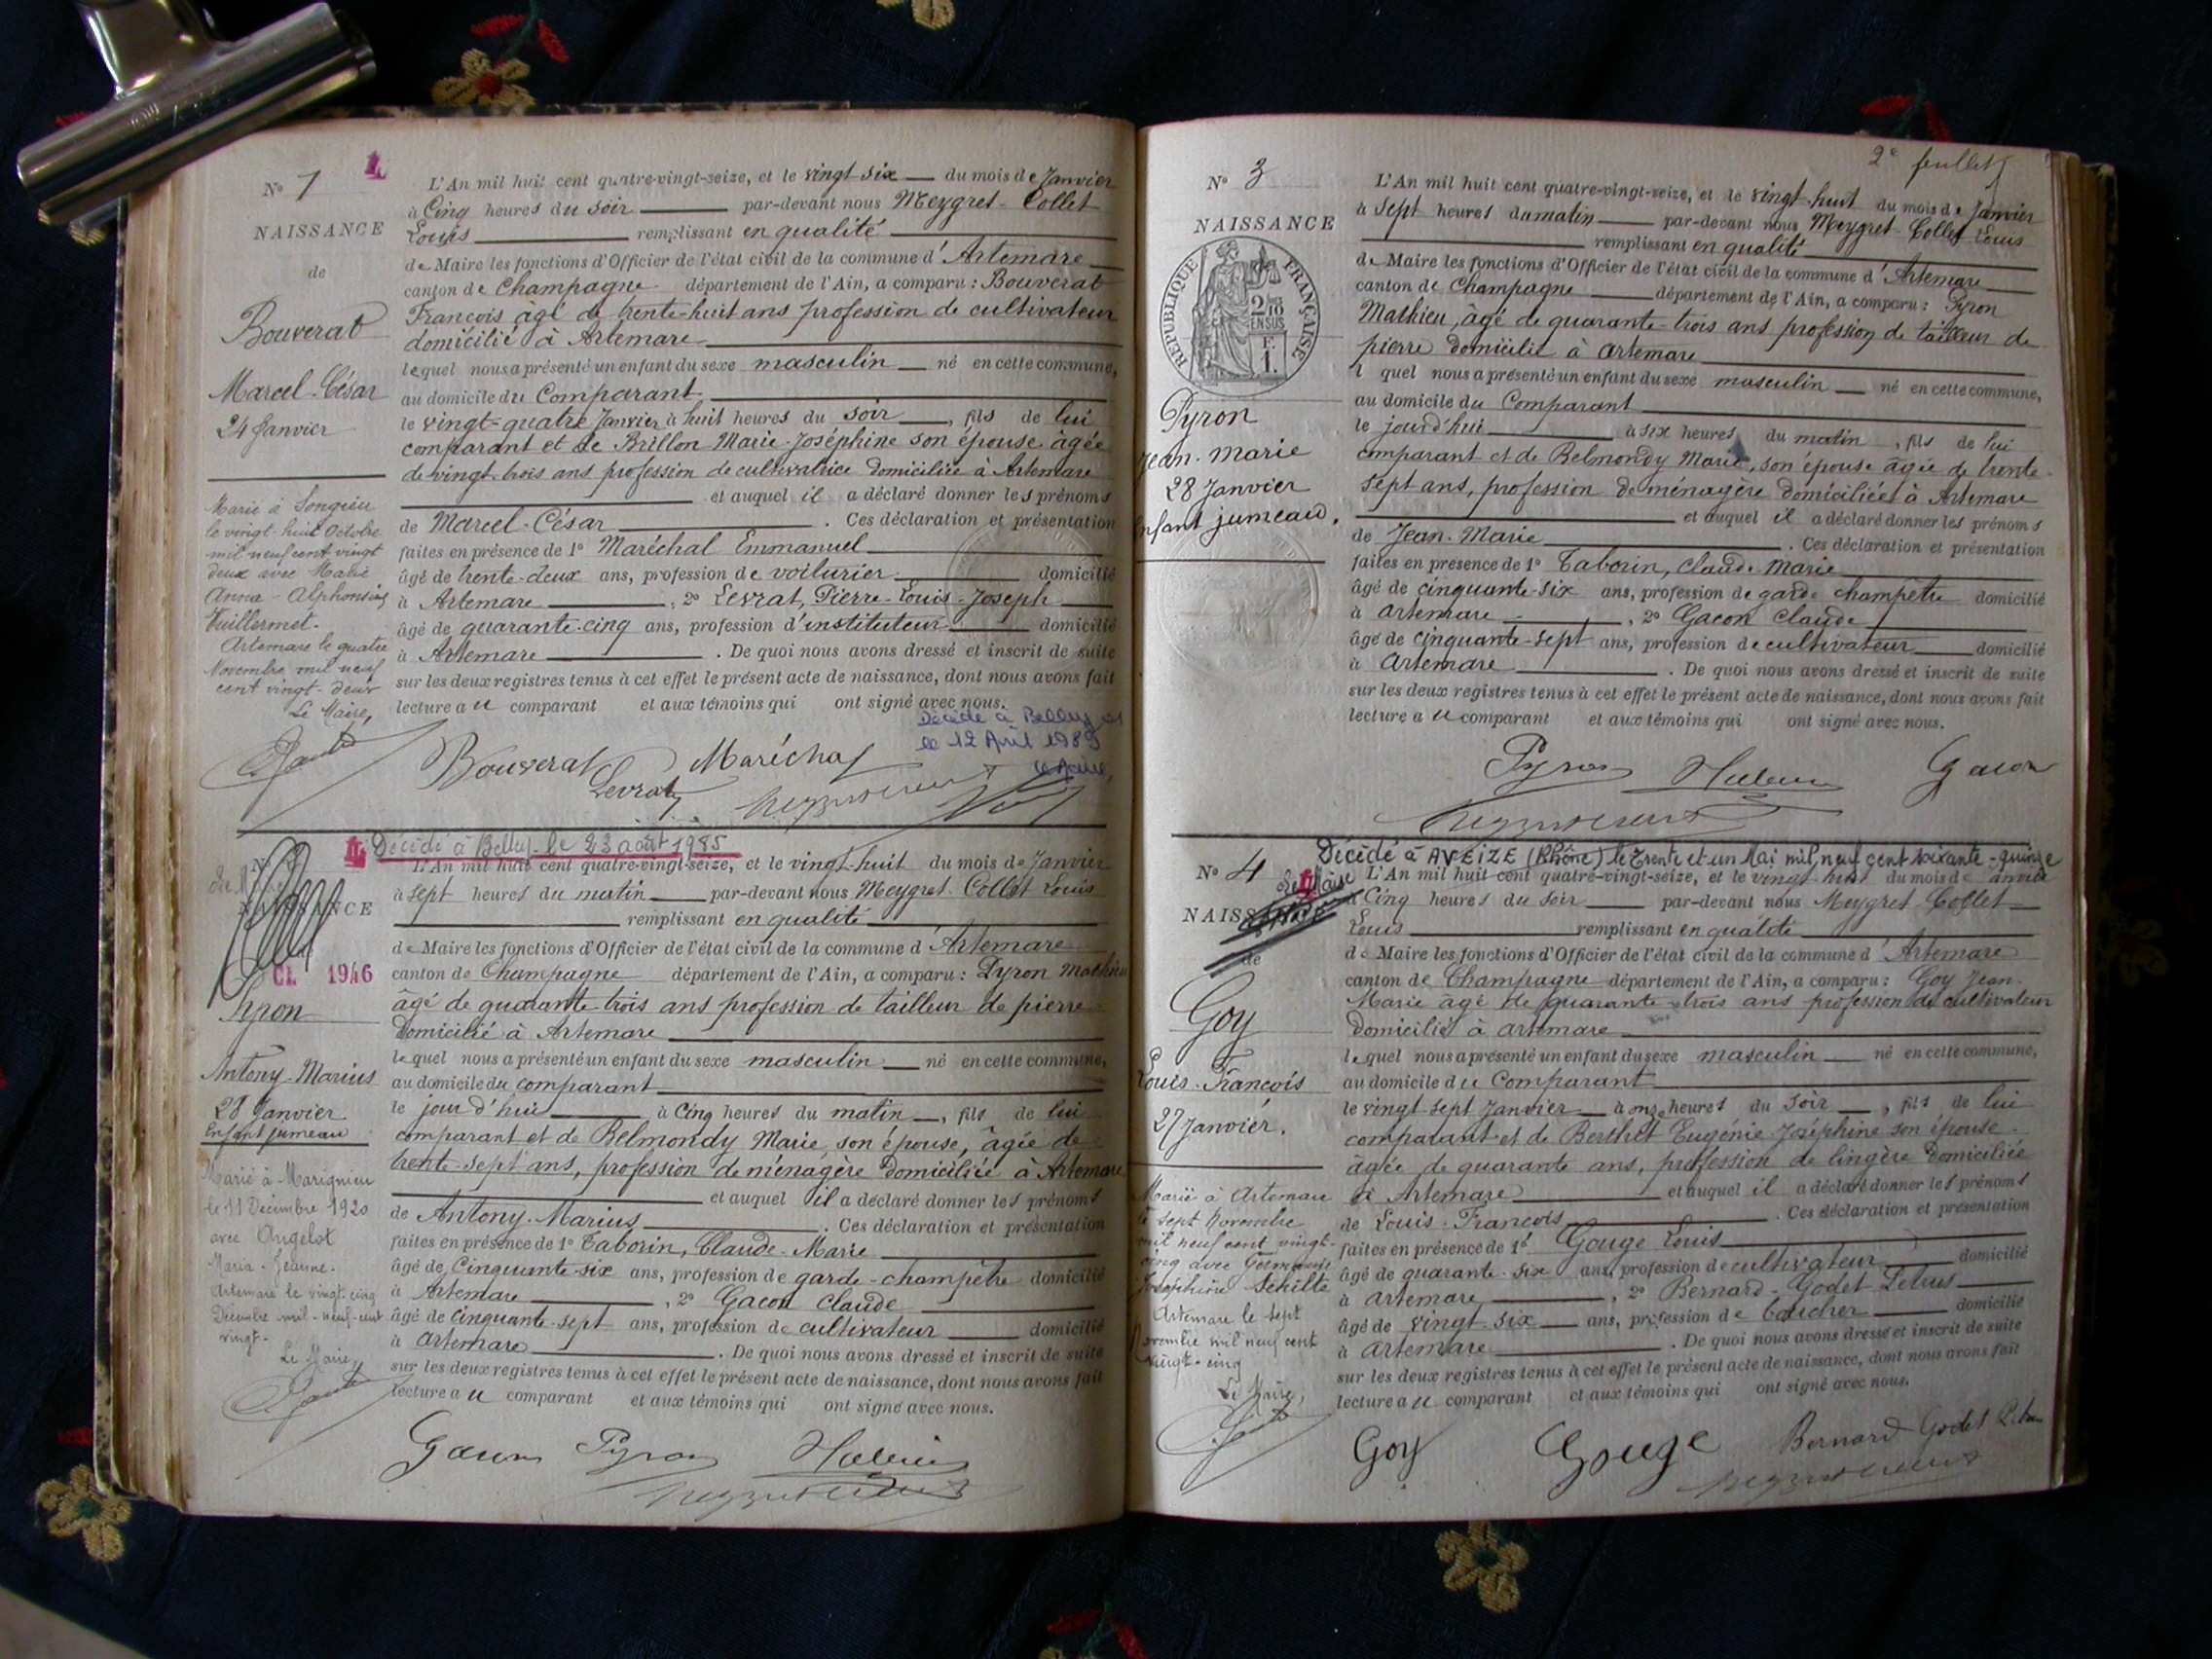 1
N° 1
NAISSANCE
de
Bouverat
Marcel-César
24 Janvier
Marié à Songieu
le vingt-huit Octobre
mil neuf cent vingt
deux avec Marie
Anna-Alphonsine
Vuillermet.
Artemare le quatre
Novembre mil neuf
cent vingt-deux
Le Maire,
L'An mil huit cent quatre-vingt-seize, et le vingt-six du mois de Janvier
à Cinq heures du soir par-devant nous Meygret-Collet
Louis remplissant en qualité
de Maire les fonctions d'Officier de l'état civil de la commune d'Artemare
canton de Champagne département de l'Ain, a comparu : Bouverat
François âgé de trente-huit ans profession de cultivateur
domicilié à Artemare
lequel nous a présenté un enfant du sexe masculin né en cette commune,
au domicile du Comparant
le vingt-quatre Janvier à huit heures du soir, fils de lui
comparant et de Brillon Marie-Joséphine son épouse âgée
de vingt-trois ans profession de cultivatrice domiciliée à Artemare
et auquel il a déclaré donner les prénoms
de Marcel-César. Ces déclaration et présentation
faites en présence de 1° Maréchal Emmanuel
âgé de trente-deux ans, profession de voiturier domicilié
à Artemare, 2° Levrat, Pierre-Louis-Joseph
âgé de quarante-cinq ans, profession d'instituteur domicilié
à Artemare. De quoi nous avons dressé et inscrit de suite
sur les deux registres tenus à cet effet le présent acte de naissance, dont nous avons fait
lecture au comparant et aux témoins qui ont signé avec nous.
Décédé à Belley
le 12 Avril 1989
Le Maire,
Bouverat Maréchal
Levrat
Décédé à Belley le 23 août 1985
N°
NAISSANCE
CL 1946
Pyron
Antony-Marius
28 Janvier
Enfant jumeau
Marié à Marignieu
le 11 Décembre 1920
avec Angelot
Maria-Jeanne.
Artemare le vingt-cinq
Décembre mil-neuf-cent
vingt-
Le Maire,
L'An mil huit cent quatre-vingt-seize, et le vingt-huit du mois de Janvier
à sept heures du matin par-devant nous Meygret-Collet Louis
remplissant en qualité
de Maire les fonctions d'Officier de l'état civil de la commune d'Artemare
canton de Champagne département de l'Ain, a comparu : Pyron Mathieu
âgé de quarante-trois ans profession de tailleur de pierre
domicilié à Artemare
lequel nous a présenté un enfant du sexe masculin né en cette commune,
au domicile du comparant
le jour d'hui à Cinq heures du matin, fils de lui
comparant et de Belmondy Marie, son épouse, âgée de
trente-sept ans, profession de ménagère domiciliée à Artemare
et auquel il a déclaré donner les prénoms
de Antony-Marius. Ces déclaration et présentation
faites en présence de 1° Taborin, Claude-Marie
âgé de Cinquante-six ans, profession de garde-champêtre domicilié
à Artemare, 2° Gacon Claude
âgé de Cinquante-sept ans, profession de cultivateur domicilié
à Artemare. De quoi nous avons dressé et inscrit de suite
sur les deux registres tenus à cet effet le présent acte de naissance, dont nous avons fait
lecture au comparant et aux témoins qui ont signé avec nous.
Gacon Pyron
2e feuillet
N° 3
NAISSANCE
RÉPUBLIQUE FRANÇAISE
2/10 EN SUS
F. 1.
Pyron
Jean-Marie
28 Janvier
Enfant jumeau.
L'An mil huit cent quatre-vingt-seize, et le vingt-huit du mois de Janvier
à Sept heures du matin par-devant nous Meygret-Collet Louis
remplissant en qualité
de Maire les fonctions d'Officier de l'état civil de la commune d'Artemare
canton de Champagne département de l'Ain, a comparu : Pyron
Mathieu, âgé de quarante-trois ans profession de tailleur de
pierre domicilié à Artemare
l quel nous a présenté un enfant du sexe masculin né en cette commune,
au domicile du Comparant
le jourd'hui à six heures du matin, fils de lui
comparant et de Belmondy Marie, son épouse âgée de trente-
sept ans, profession de ménagère domiciliée à Artemare
et auquel il a déclaré donner les prénoms
de Jean-Marie. Ces déclaration et présentation
faites en présence de 1° Taborin, Claude Marie
âgé de cinquante-six ans, profession de garde champêtre domicilié
à Artemare, 2° Gacon Claude
âgé de cinquante-sept ans, profession de cultivateur domicilié
à Artemare. De quoi nous avons dressé et inscrit de suite
sur les deux registres tenus à cet effet le présent acte de naissance, dont nous avons fait
lecture au comparant et aux témoins qui ont signé avec nous.
Pyron Gacon
Décédé à AVEIZE (Rhône) le trente et un Mai mil neuf cent soixante-quinze
Le Maire
N° 4
NAISSANCE
de
Goy
Louis-François
27 Janvier.
Marié à Artemare
le sept Novembre
mil neuf cent vingt-
cinq avec Germaine
Joséphine Schilte
Artemare le sept
Novembre mil neuf cent
vingt-cinq
Le Maire,
L'An mil huit cent quatre-vingt-seize, et le vingt-huit du mois de Janvier
à Cinq heures du soir par-devant nous Meygret-Collet
Louis remplissant en qualité
de Maire les fonctions d'Officier de l'état civil de la commune d'Artemare
canton de Champagne département de l'Ain, a comparu : Goy Jean-
Marie âgé de quarante-trois ans profession de cultivateur
domicilié à Artemare
lequel nous a présenté un enfant du sexe masculin né en cette commune,
au domicile du Comparant
le vingt-sept Janvier à onze heures du soir, fils de lui
comparant et de Berthet Eugénie Joséphine son épouse
âgée de quarante ans, profession de lingère domiciliée
à Artemare et auquel il a déclaré donner les prénoms
de Louis-François. Ces déclaration et présentation
faites en présence de 1° Gouge Louis
âgé de quarante-six ans, profession de cultivateur domicilié
à Artemare, 2° Bernard-Godet Lélius
âgé de vingt-six ans, profession de boucher domicilié
à Artemare. De quoi nous avons dressé et inscrit de suite
sur les deux registres tenus à cet effet le présent acte de naissance, dont nous avons fait
lecture au comparant et aux témoins qui ont signé avec nous.
Goy Gouge Bernard Godet